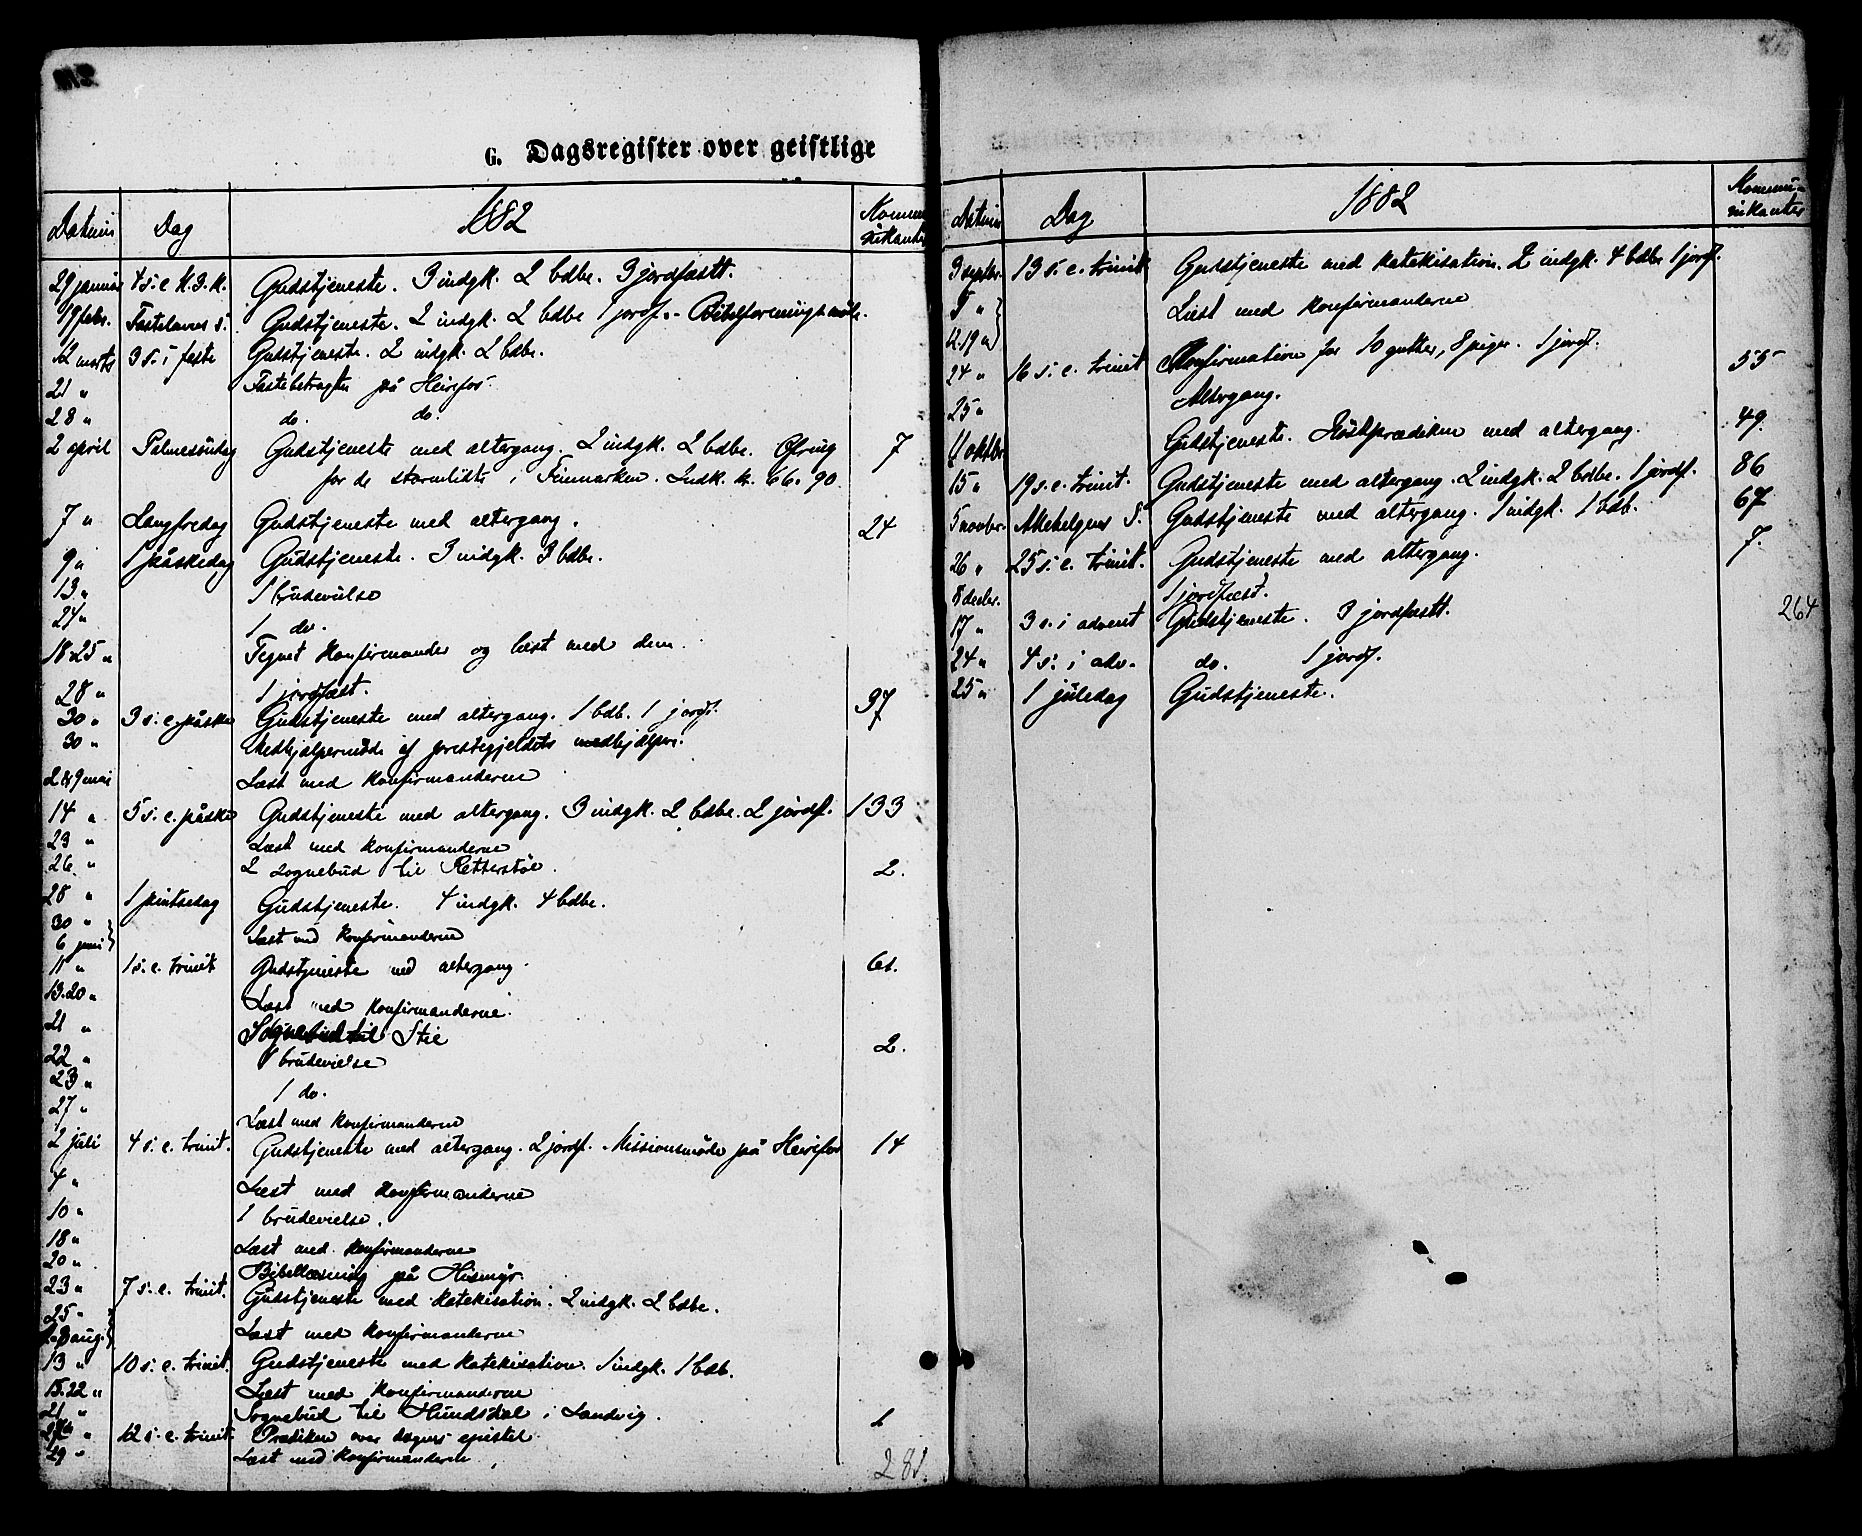 G. Dagsregister over geistlige
Datum Dag 1882 Kommunikanter
29 januar 4 s. e. H. 3. K. Gudstjeneste. 3 indgk. 2 bdbe. 3 jordfæstt.
19 febr. Fastelavns s. Gudstjeneste. 2 indgk. 2 bdbe 1 jordf. - Bibelforeningsmöte.
12 marts 3 s. i faste Gudstjeneste. 2 indgk. 2 bdbe.
21 " Fastebetragtn på Heirefos.
28 " do. do.
2 april Palmesöndag Gudstjeneste med altergang. 2 indgk. 2 bdbe. Ofring 7
for de stormlidte i Finmarken. Indk. kr. 66.90
7 " Langfredag Gudstjeneste med altergang. 24
9 " 1 påskedag Gudstjeneste. 3 indgk. 3 bdbe.
13 " 1 brudevielse
24 " 1 do.
18.25 " Tegnet konfirmander og læst med dem.
28 " 1 jordfæst.
30 " 3 s. e. påske Gudstjeneste med altergang. 1 bdb. 1 jordf. 37
30 " Medhjælpermöde af prestegjeldets medhjælper.
2 & 9 mai Læst med konfirmanderne
14 " 5 s. e. påske Gudstjeneste med altergang. 3 indgk. 2 bdbe. 2 jordf. 133
23 " Læst med konfirmanderne
26 " 2 sognebud til Retterstöl. 2.
28 " 1 pintsedag Gudstjeneste. 4 indgk. 4 bdbe.
30 "
6 juni } Læst med konfirmanderne
11 " 1 s. e. trinit Gudstjeneste med altergang. 61.
13.20 " Læst med konfirmanderne.
21 " Sognebud til Stie 2.
22 " 1 brudevielse
23 " 1 do.
27 " Læst med konfirmanderne
2 juli 4 s. e. trinit. Gudstjeneste med altergang. 2 jordf. - Missionsmöde på Heirefos 14
4 " Læst med konfirmanderne
10 " 1 brudevielse.
18 " Læst med konfirmanderne
20 " Bibellæsning på Hismyr
23 " 7 s. e. trinit. Gudstjeneste med katekisation. 2 indgk. 2 bdbe.
25 "
1. 8 aug. } Læst med konfirmanderne
13 " 10 s. e. trinit. Gudstjeneste med katekisation. 1 indgk. 1 bdb.
15.22 " Læst med konfirmanderne
21 " Sognebud til Hundsdal i Landvig. 1
27 " 12 s. e. trinit. Prædiken over dagens epistel
29 " Læst med konfirmanderne
281.
Datum Dag 1882 Kommunikanter
3 septbr. 13 s. e. trinit Gudstjeneste med katekisation. 2 indgk. 4 bdbe 1 jordf.
5 "
12.19 " } Læst med konfirmanderne
24 " 16 s. e. trinit Konfirmation for 10 gutter, 8 piger. 1 jordf.
25 " Altergang. 55
1 oktbr. Gudstjeneste. Höstprædiken med altergang. 49.
15 " 19 s. e. trinit. Gudstjeneste med altergang. 2 indgk. 2 bdbe. 1 jordf. 86
5 novbr. Allehelgens S. Gudstjeneste med altergang. 1 indgk. 1 bdb. 67
26 " 25 s. e. trinit. Gudstjeneste med altergang. 7.
8 decbr. 1 jordfæst.
17 " 3 s. i advent Gudstjeneste. 3 jordfæstt. 264
24 " 4 s. i adv. do. 1 jordf.
25 " 1 juledag Gudstjeneste.